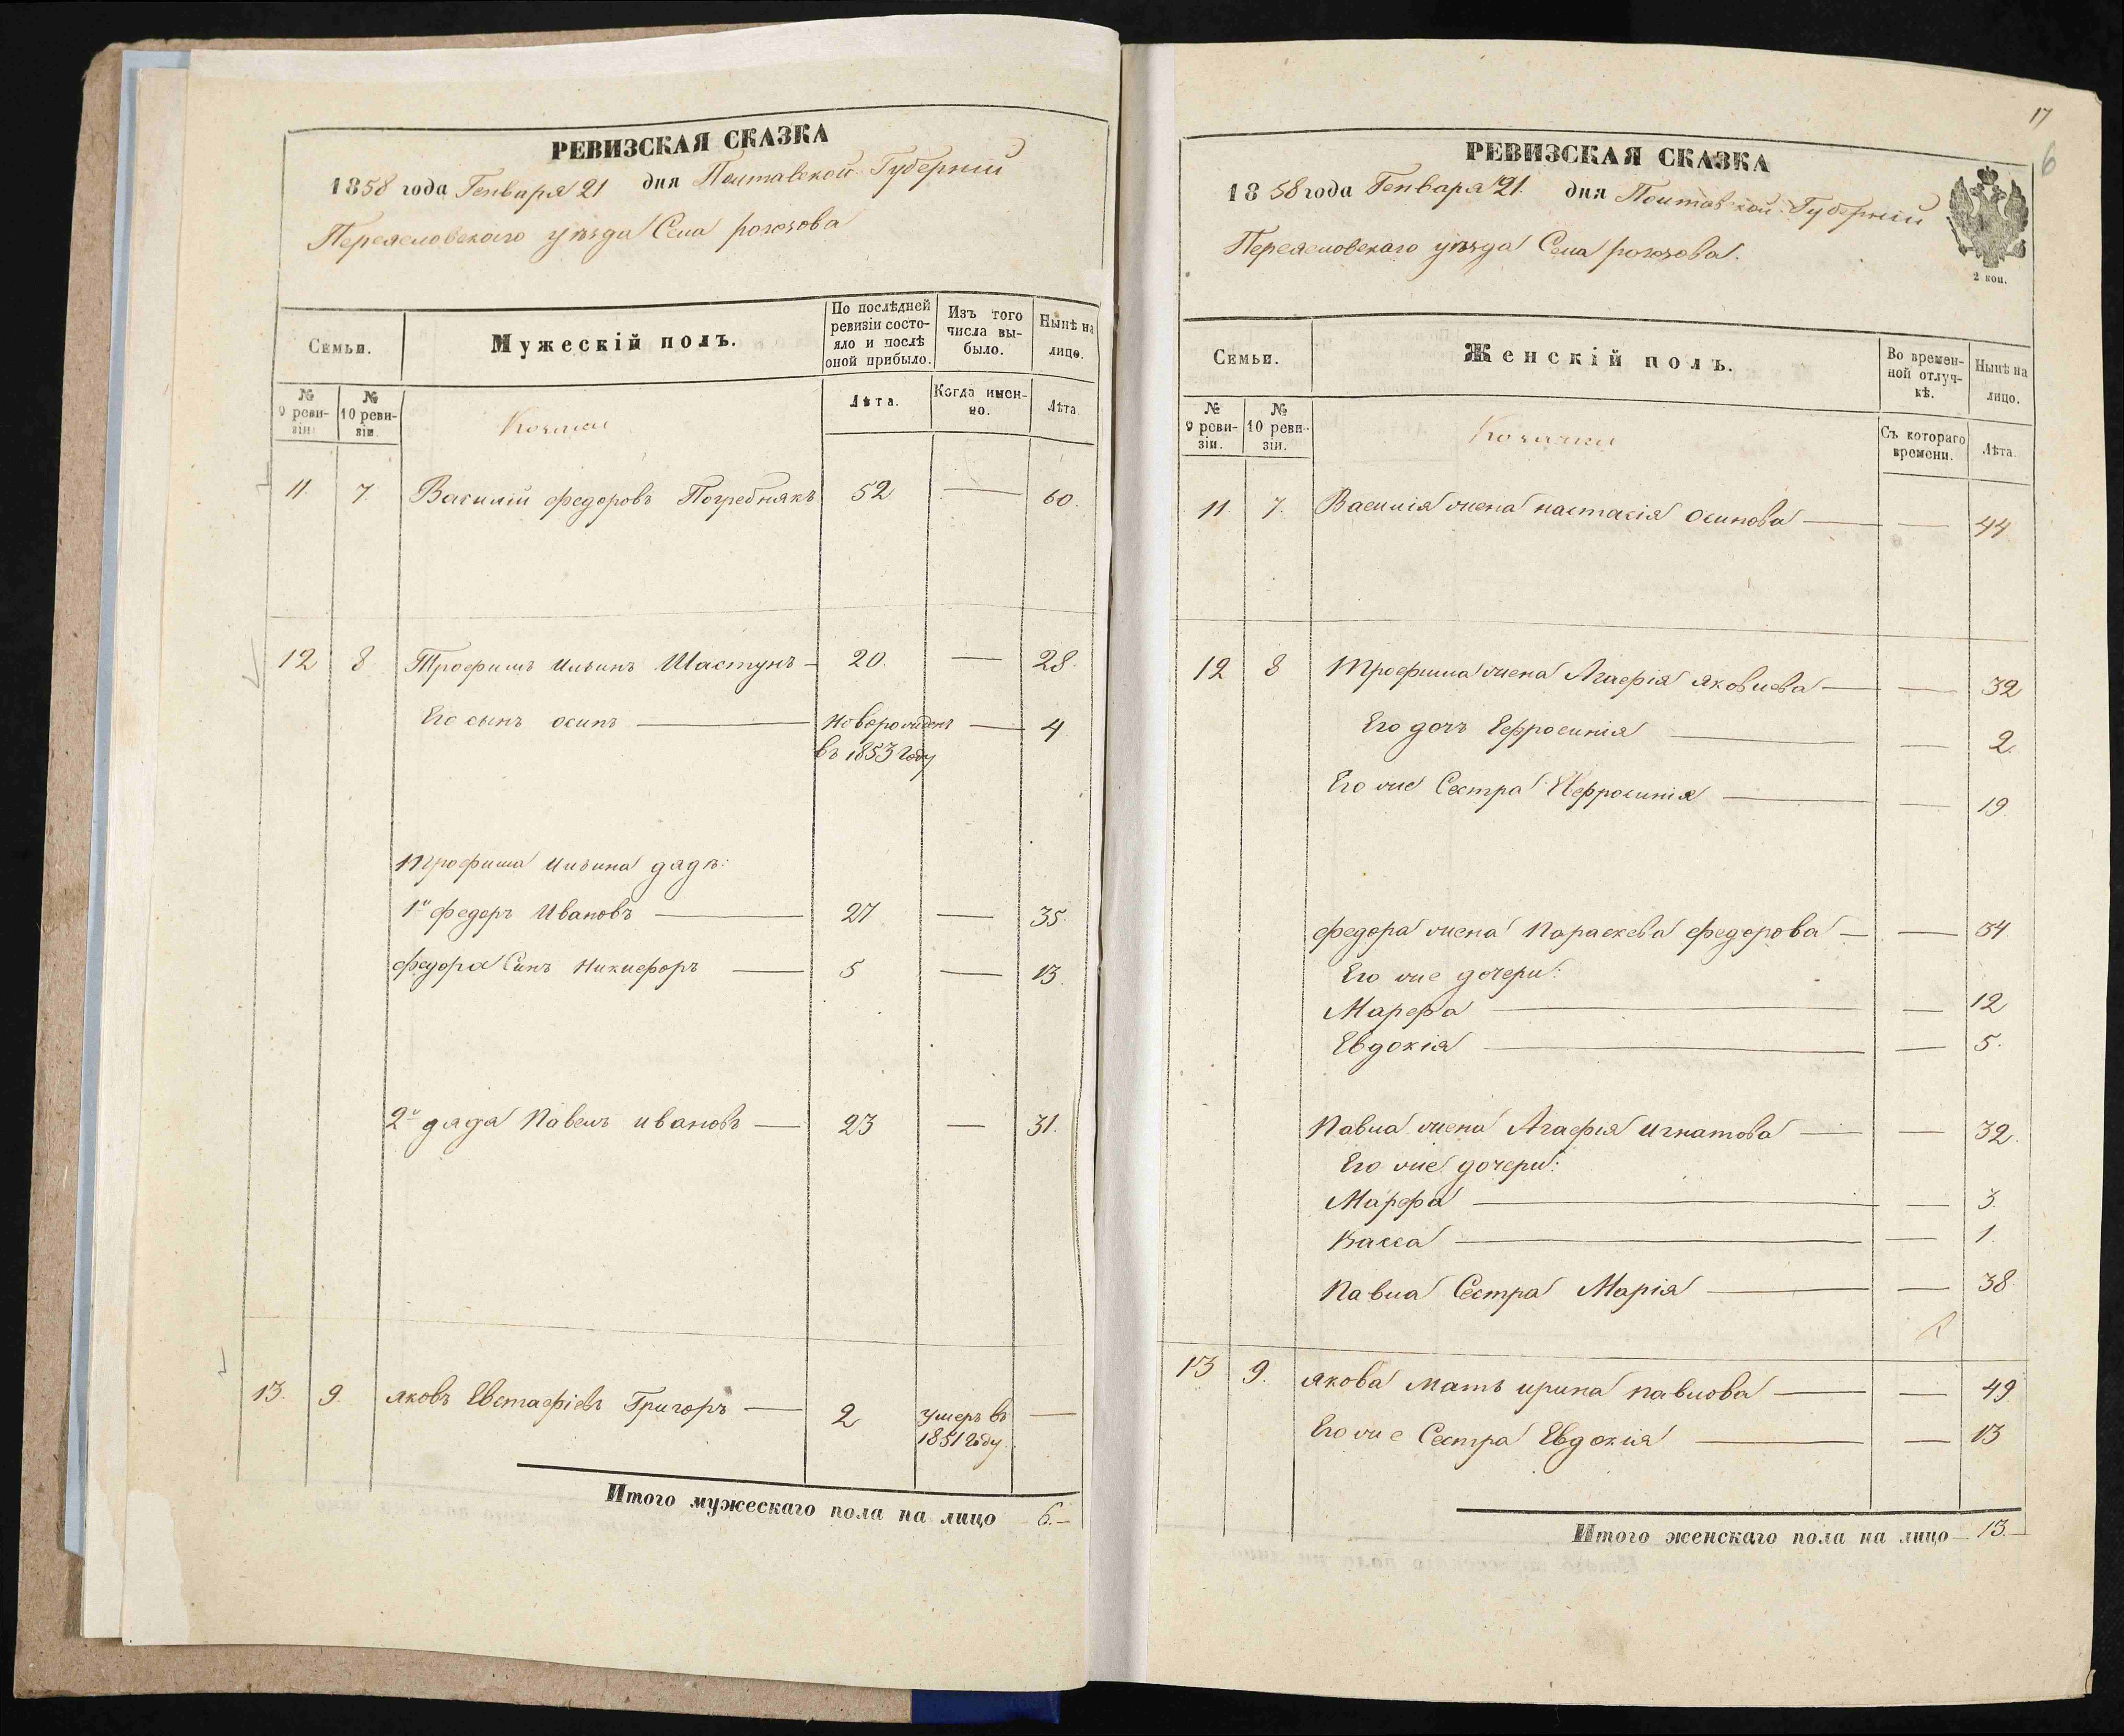 РЕВИЗСКАЯ СКАЗКА
1858 года Генваря 21 дня Полтавской Губерніи
Переяславского уѣзда Села рогозова
Семьи.
Мужескій полъ.
По послѣдней ревизіи состояло и послѣ оной прибыло.
Изъ того числа выбыло.
Нынѣ на лицо.
№ 9 ревизіи.
№ 10 ревизіи.
Козаки
Лѣта.
Когда именно.
Лѣта.
11 7. Василій федоровъ Погребнякъ 52 — 60.
12 8 Трофимъ Ильинъ Шастунъ — 20. — 28.
Его сынъ осипъ — новорожденъ — 4
въ 1853 году
Трофима Ильина дядѣ:
1й федоръ Ивановъ — 27 — 35.
федора Синъ Никифоръ — 5 — 13.
2й дядя Павелъ ивановъ — 23 — 31.
13. 9. яковъ Евстафіевъ Григоръ — 2 умеръ въ —
1851 году
Итого мужескаго пола на лицо 6.—
17
6
РЕВИЗСКАЯ СКАЗКА
1858 года Генваря 21. дня Полтавской Губерніи
Переясловскаго уѣзда Села рогозова.
2 коп.
Семьи.
Женскій полъ.
Во временной отлучкѣ.
Нынѣ на лицо.
№ 9 ревизіи.
№ 10 ревизіи.
Козачки
Съ котораго времени.
Лѣта.
11. 7. Василія жена настасія осипова — — 44
12 8 Трофима жена Агафія яковлева — — 32
Его дочъ Ефросинія — — 2.
Его же Сестра Евфросинія — — 19.
федора жена Параскева федорова — — 34
Его же дочери:
Марфа — — 12
Евдокія — — 5.
Павла жена Агафия игнатова — — 32.
Его же дочери:
Марфа — — 3.
Васса — — 1.
Павла Сестра Марія — — 38
13 9. якова мать ирина павлова — — 49
Его же Сестра Евдокия — — 13
Итого женскаго пола на лицо — 13.—